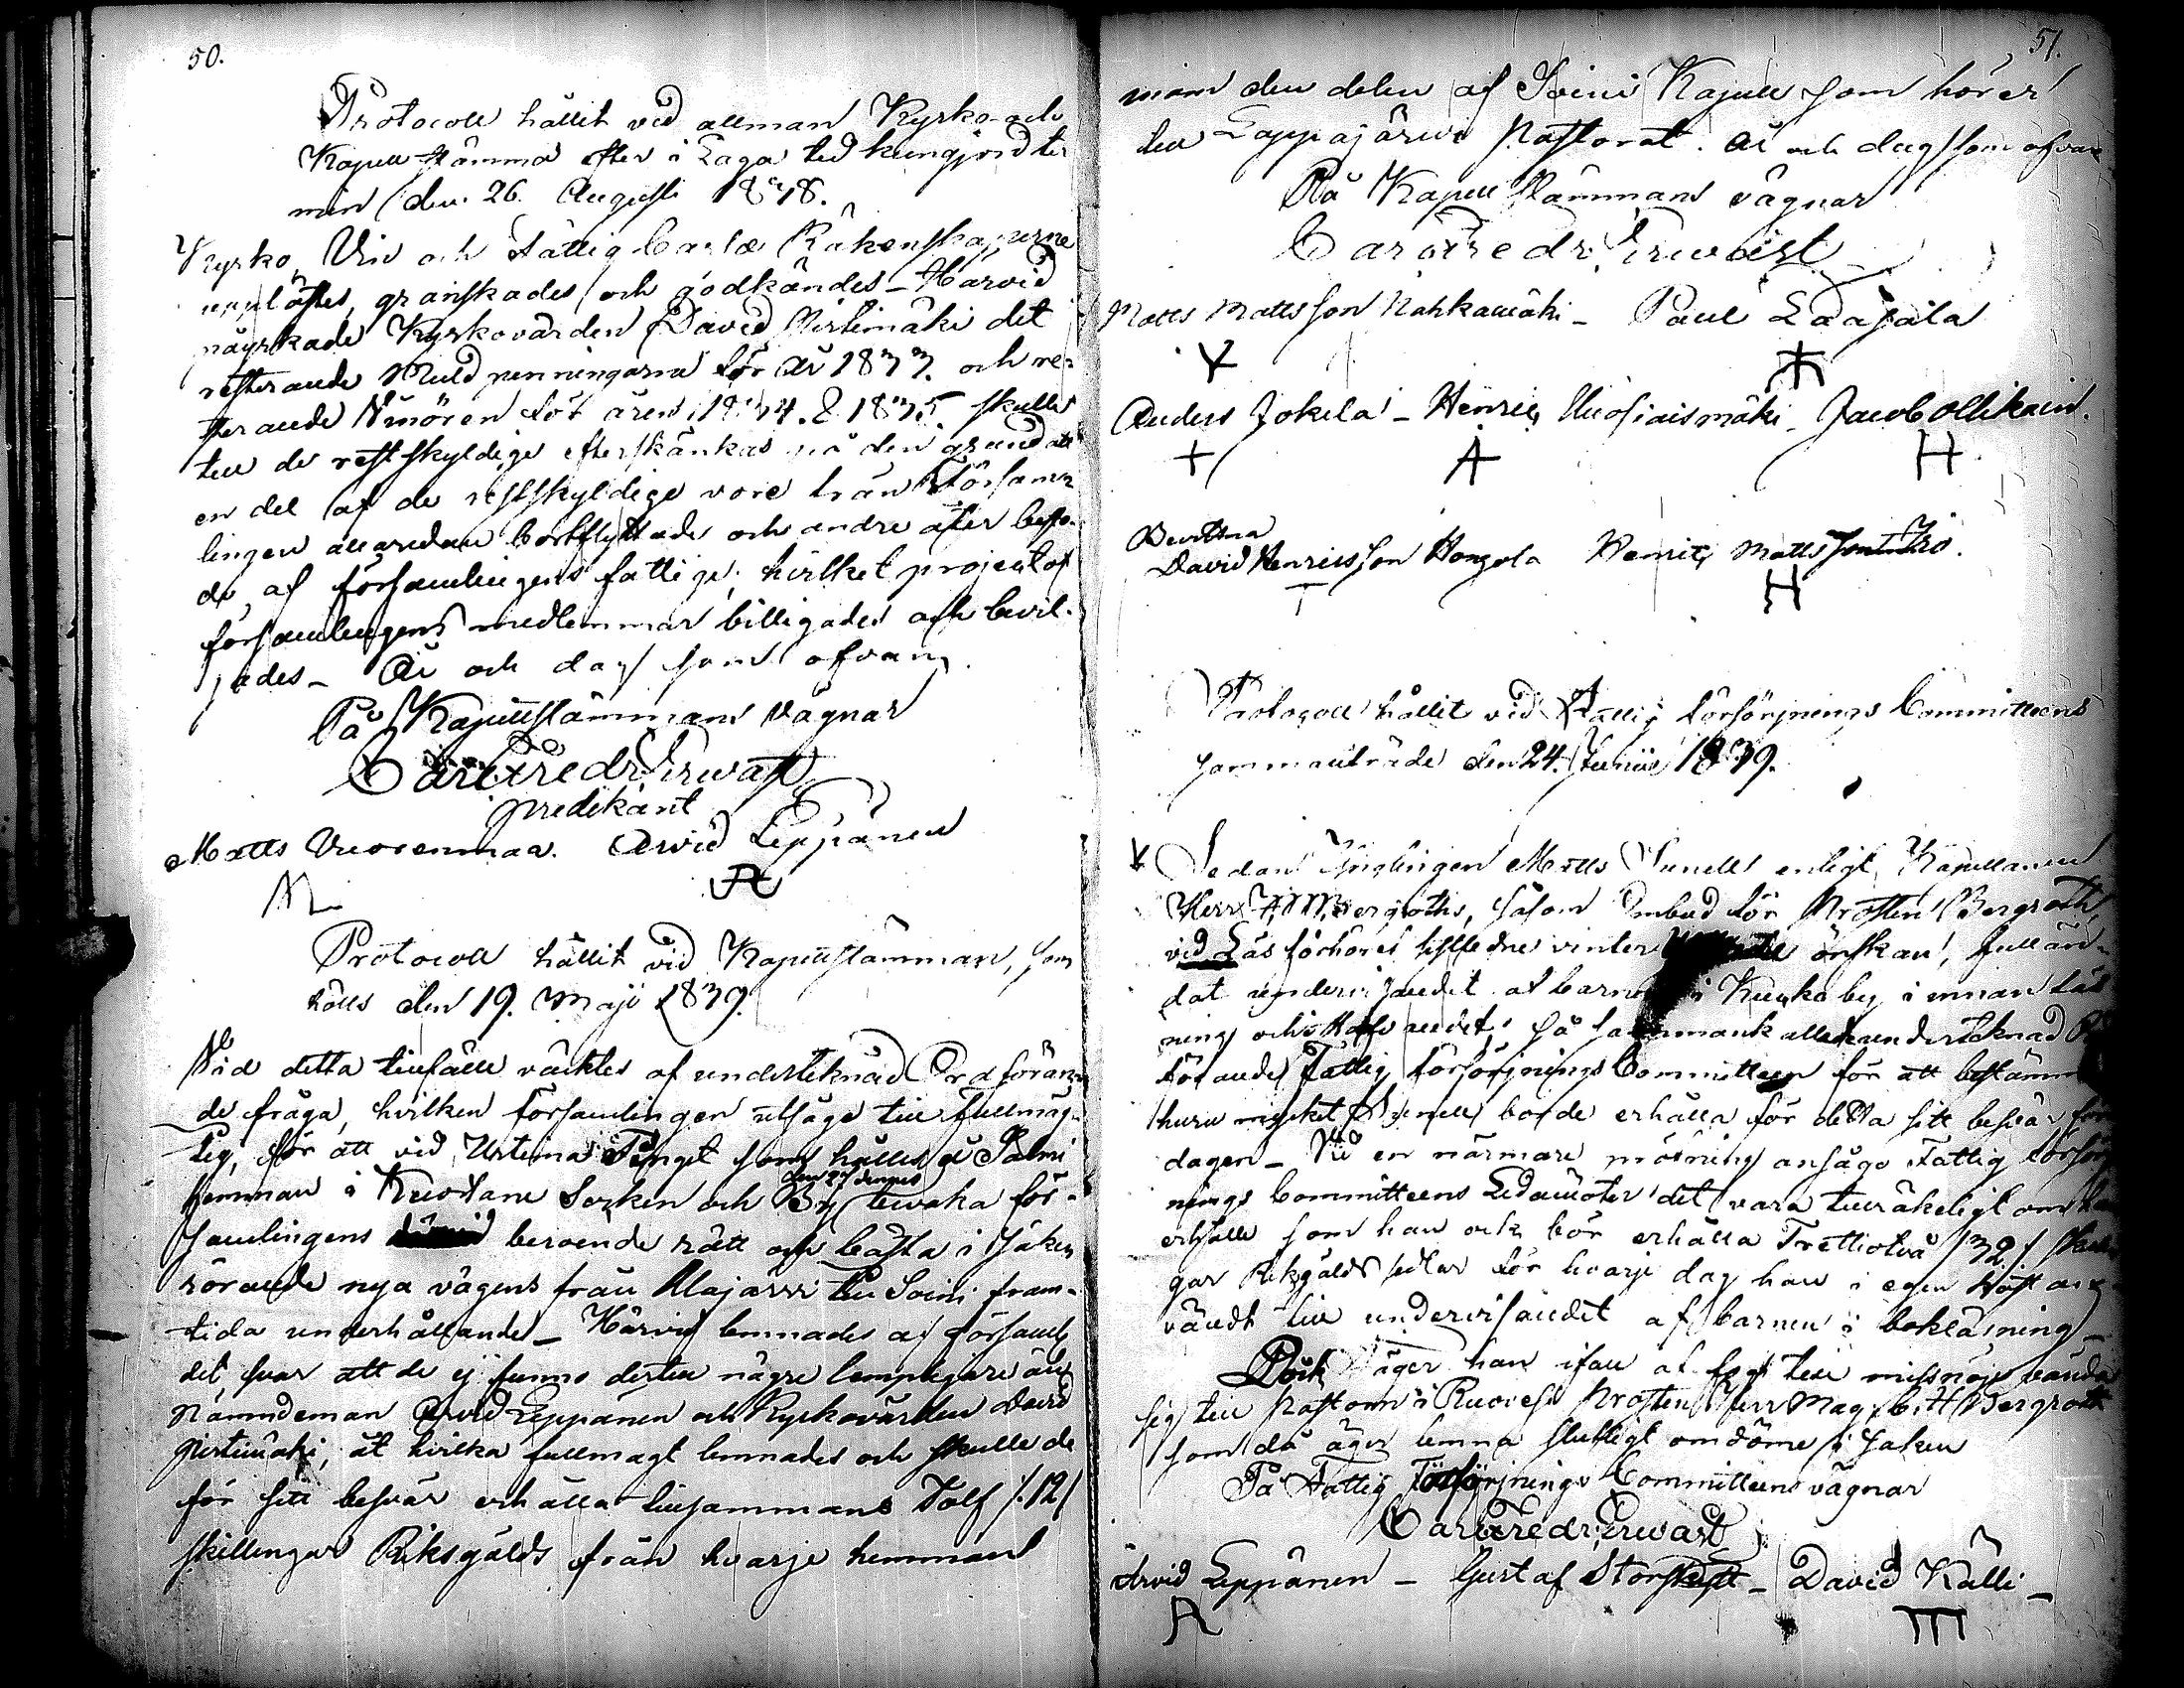 50.
Protocoll hållit vid allmän Kyrko- och
Kapell stämma efter i Laga tid kungjord ter
min den 26. Augusti 1838.
Kyrko, Vin och Fattig Cassæ Räkenskaperne
upplästes, granskades och godkändes - Härvid
påyrkade Kyrkovärden David Pirttimäki det
resterande Muld penningarna för År 1833. och re-
sterande Smören för åren 1834. & 1835 skulle
till de restskyldige efterskänkas på den grund att
en del af de restskyldige vore från Församm
lingen allaredan bortflyttade och andre åter besto-
de af församlingens fattige; hvilket project af
församlingens medlemmar billigades och bevil-
jades - År och dag som ofvan.
På Kapellstämmans vägnar
Carl Fredr. Ervast
predikant
Matts Vuorenmaa. Arvid Leppänen
Protocoll hållit vid Kapellstämman, som
hölls den 19. Maji 1839.
Vid detta tillfälle väcktes af undertecknad Ordföran-
de fråga, hvilken församlingen utsåge till fullmäg-
tig, för att vid Urtima Tinget som hålles å Salmi
hemman i Kuortane Socken och By den 27 dennes bevaka för-
samlingens beroende rätt och bästa i saken
rörande nya vägens från Alajärvi till Soini fram-
tida underhållande - Härvid lemnades af församl
det svar att de ej funno dertill någre lämpligare än
Nämndeman Arvid Leppänen och Kyrkovärden David
Pirttimäki, åt hvilka fullmagt lemnades och skulle de
för sitt besvär erhålla tillsammans Tolf /:12/
skillingar Riksgälds från hvarje hemman
51.
inom den delen af Soini Kapell som hörer
till Lappajärvi Pastorat. År och dag som ofvan
På Kapell stämmans vägnar
Carl Fredr. Ervast
Matts Mattsson Nahkamäki - Paul Laasala
Anders Jokela - Henric Kuosiaismäki - Jacob Ollikain.
Bevittna
David Henricsson Hongola Henric Mattsson Iso.
Protocoll hållit vid Fattig försörjnings Committeens
sammanträde den 24. Junii 1839.
Sedan Ynglingen Matts Sunell enligt Kapellanen
Herr Bergroths, såsom Ombud för Prosten Bergroth,
vid Läsförhöret sistledne vinter önskan, fullän-
dat undervisandet af barnen i Kuukka by i innan läs
ning och stafvandet; så sammankallade undertecknad
förande Fattig försörjnings Committeen för att bestämm
huru mycket Sunell borde erhålla för detta sitt besvär om
dagen - Vid en närmare pröfning ansågo Fattig försörj
nings Committeens Ledamöter det vara tillräckeligt om han
erhölle som han ock bör erhålla Trettiotvå /32/ skillin-
gar Riksgälds sedlar för hvarje dag han i egen kost an
vändt till undervisandet af barnen i bokläsning
Dock äger han ifall af sig teende missnöje vända
sig till Pastorn i Ruovesi Prosten Herr Mag. C. H. Bergroth
som då äger lemna slutligt omdöme i saken
På Fattig Försörjnings Committeens vägnar
Carl Fredr. Ervast
Arvid Leppänen - Gustaf Storskytt - David Källi -